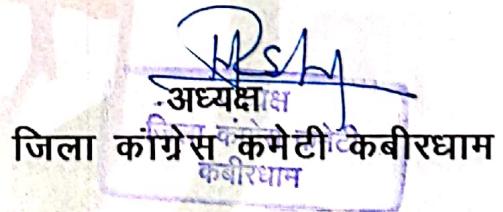 अध्यक्ष
जिला कांग्रेस कमेटी कबीरधाम
अध्यक्ष
जिला कांग्रेस कमेटी
कबीरधाम